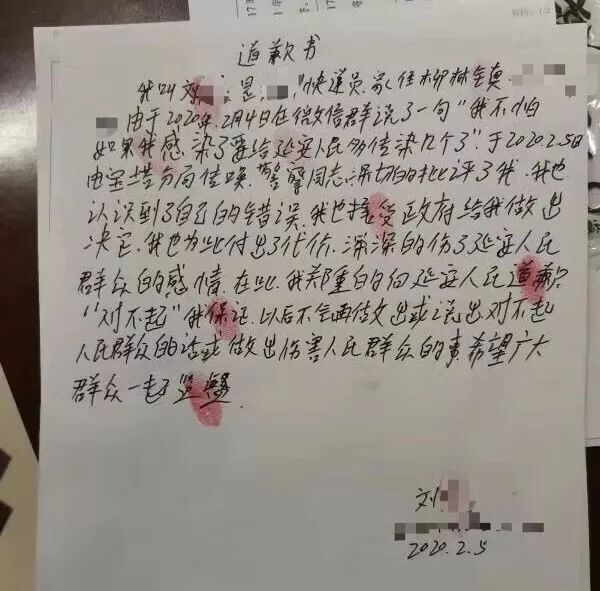 道歉书
我叫刘 是 "快递员,家住柳林镇
由于2020年2月4日在微信群说了一句"我不怕
如果我感染了要给延安人民多传染几个了".于2020.2.5日
由宝塔分局传唤.警察同志深切的批评了我.我也
认识到了自己的错误.我也接受政府给我做出
决定.我也为此付出了代价.深深的伤了延安人民
群众的感情.在此.我郑重的向延安人民道歉:
"对不起"我保证.以后不会再做出或说出对不起
人民群众的话或做出伤害人民群众的事希望广大
群众一起监督.
刘
2020.2.5